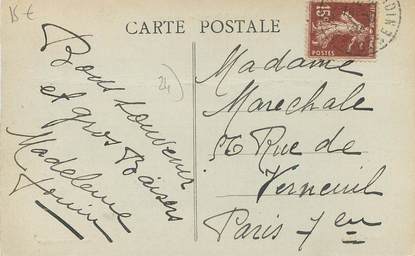 15 €
CARTE POSTALE
15c
POSTES
24
Bons souvenirs
et gros Baisers
Madeleine
Madame
Marechale
56 Rue de
Verneuil
Paris 7em